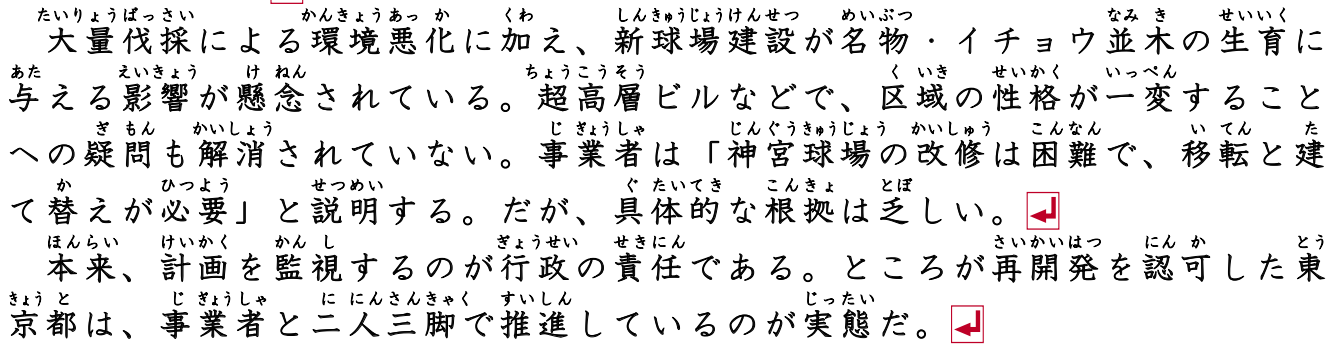 大量伐採による環境悪化に加え、新球場建設が名物・イチョウ並木の生育に
与える影響が懸念されている。超高層ビルなどで、区域の性格が一変すること
への疑問も解消されていない。事業者は「神宮球場の改修は困難で、移転と建
て替えが必要」と説明する。だが、具体的な根拠は乏しい。
本来、計画を監視するのが行政の責任である。ところが再開発を認可した東
京都は、事業者と二人三脚で推進しているのが実態だ。